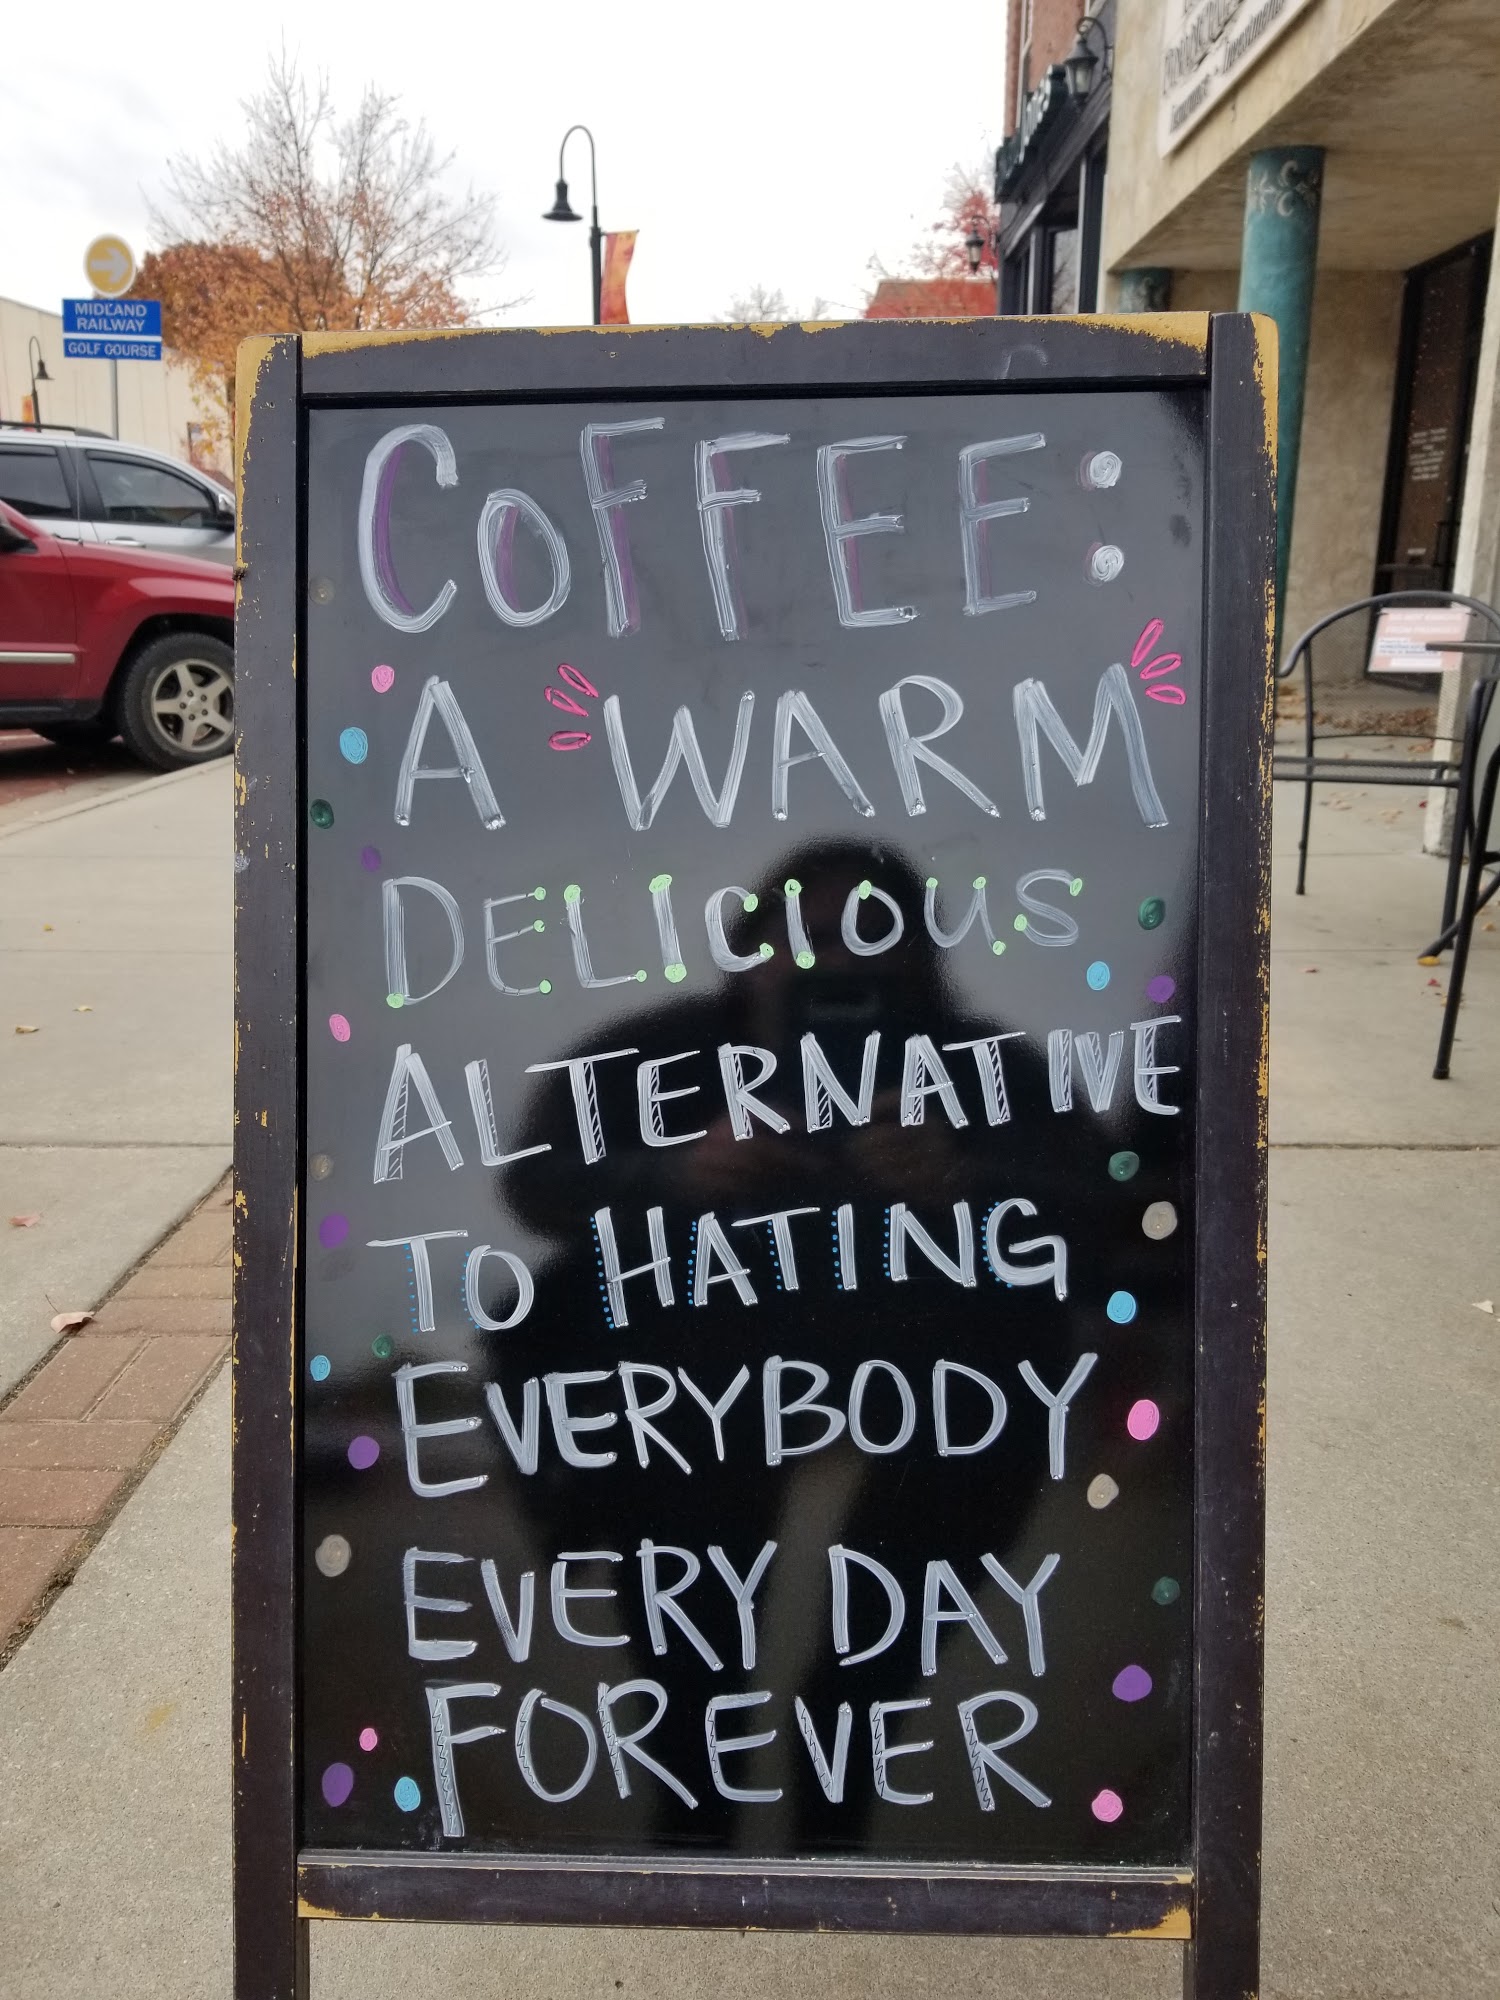 MIDLAND
RAILWAY
GOLF COURSE
COFFEE:
A WARM
DELICIOUS
ALTERNATIVE
TO HATING
EVERYBODY
EVERY DAY
FOREVER